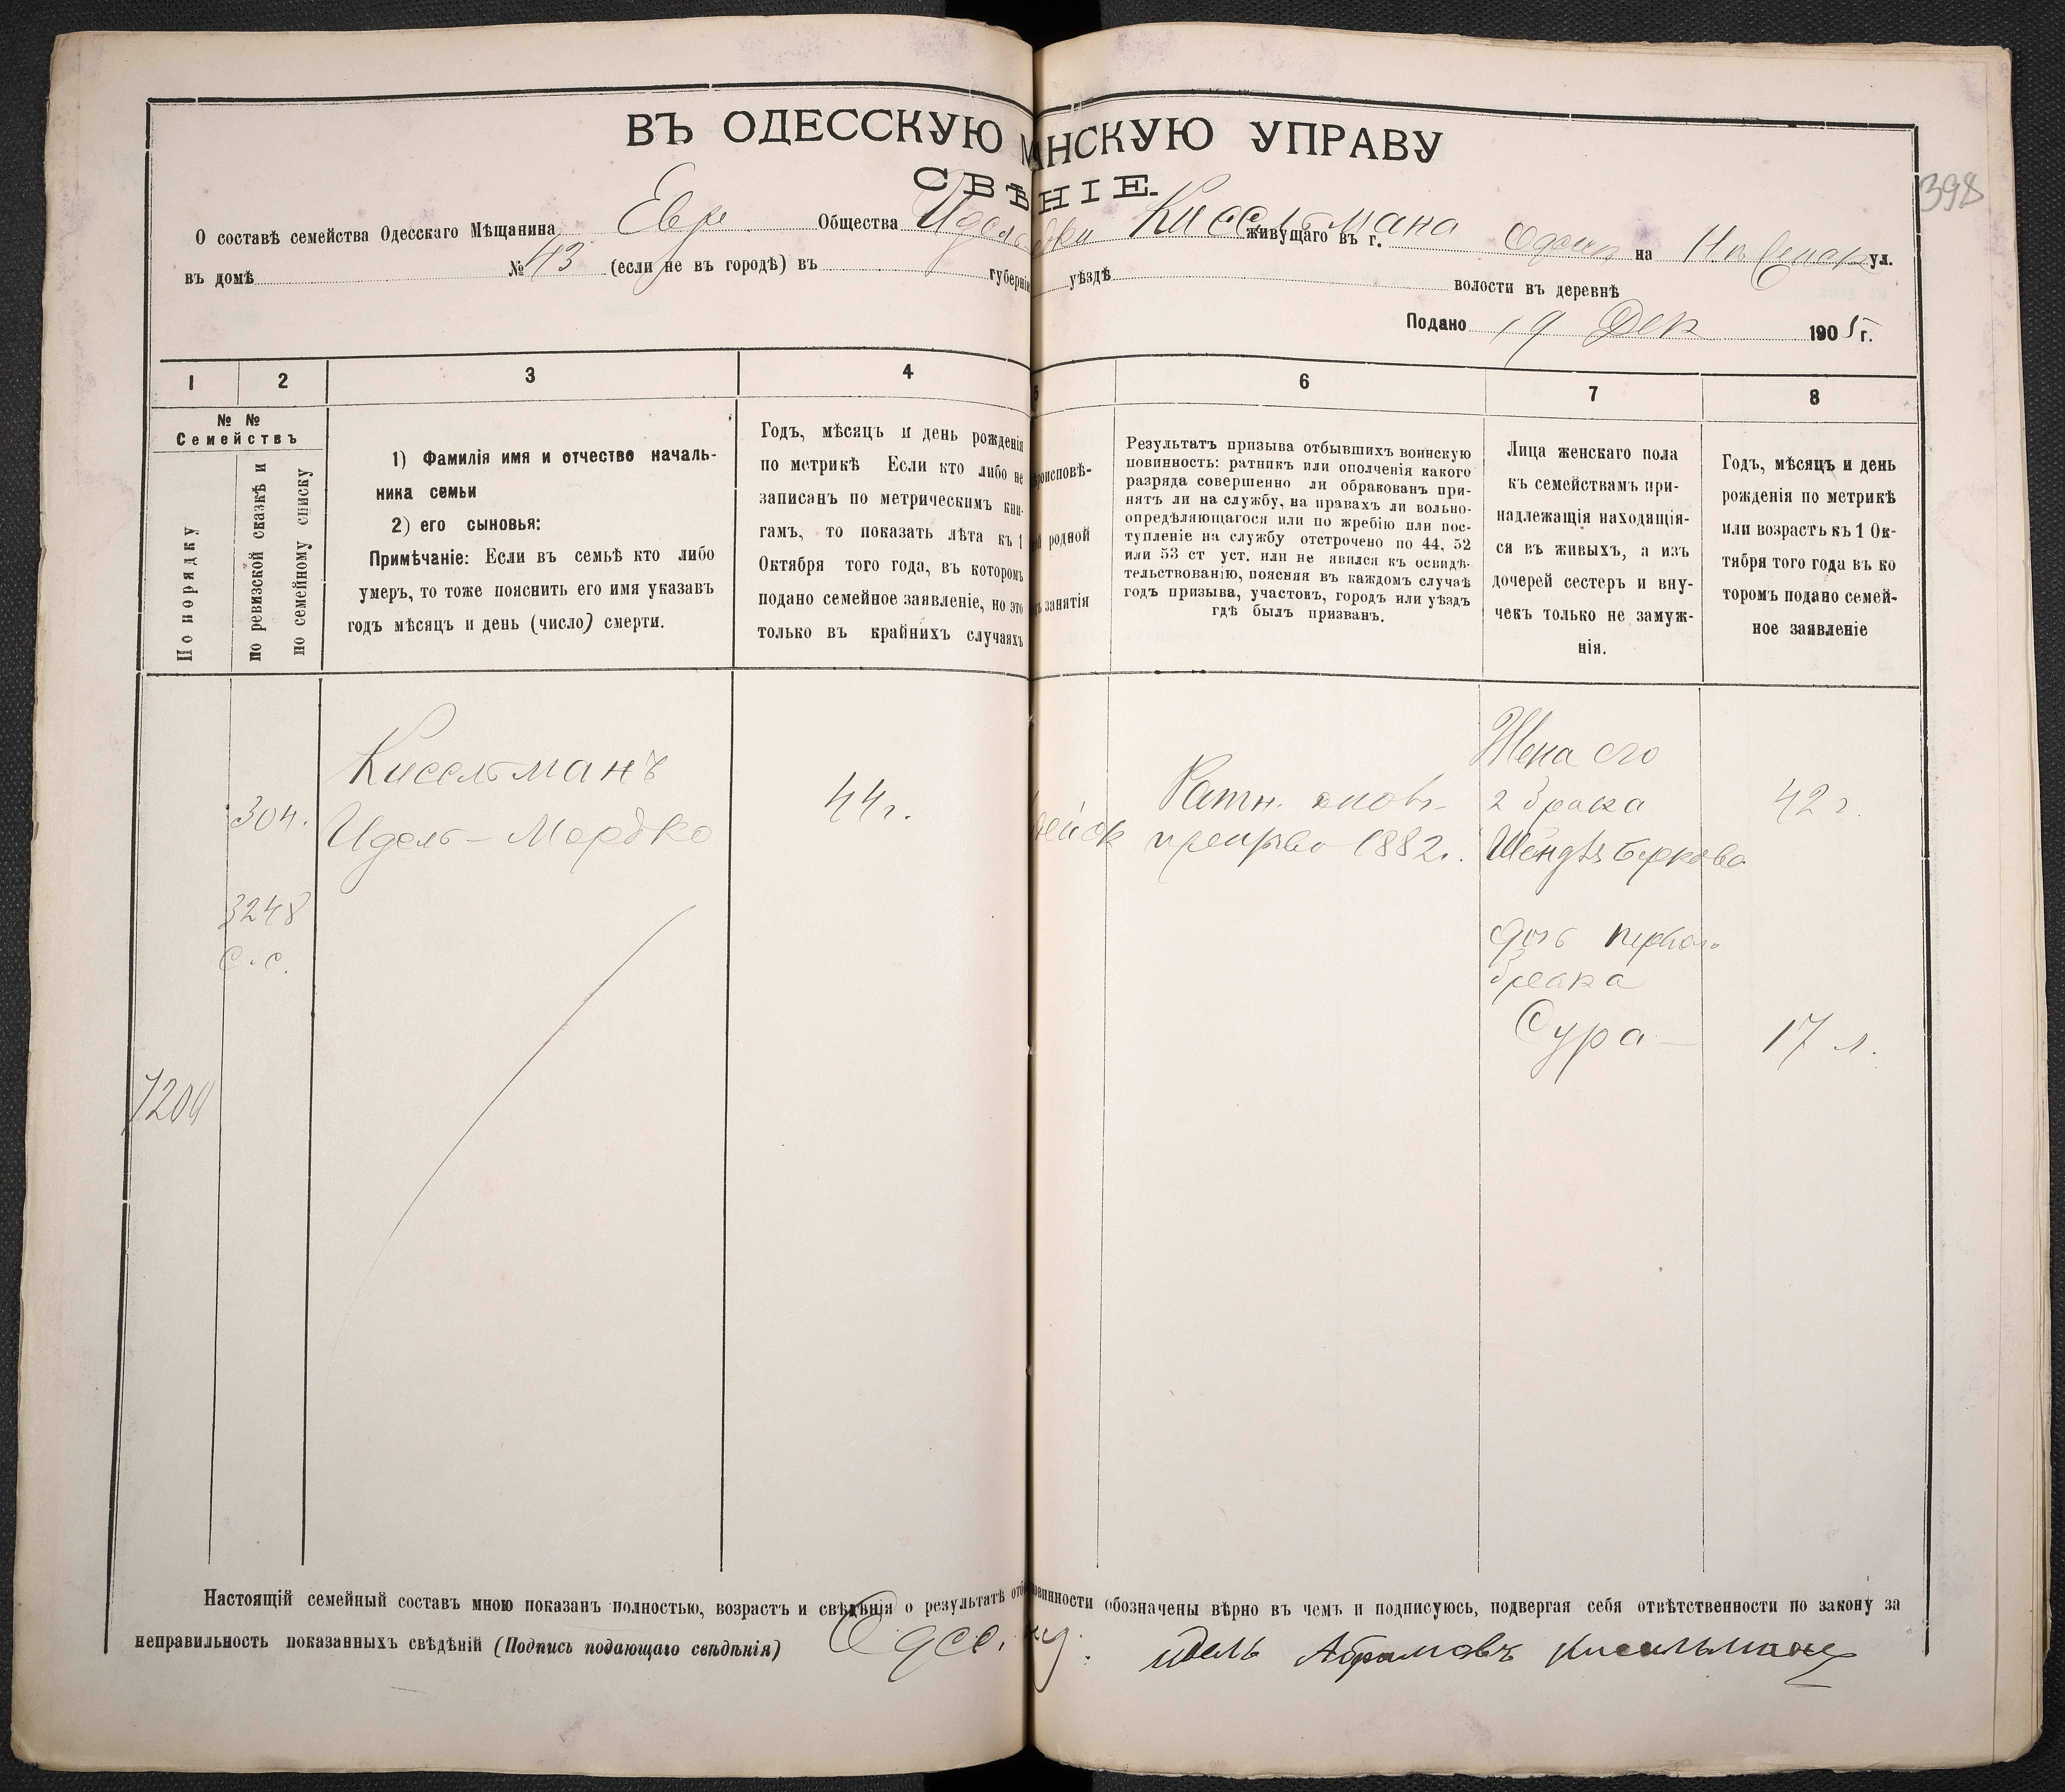 ВЪ ОДЕССКУЮ М АНСКУЮ УПРАВУ
СВѢ НІЕ.
398
О составѣ семейства Одесскаго Мѣщанина Евр Общества Идель Киссельмана живущаго въ г. Одессѣ на ул.
въ домѣ № 43 (если не въ городѣ) въ губерніи уѣздѣ волости въ деревнѣ
Подано 19 Дек 1905 г.
1 2 3 4 5 6 7 8
№ №
Семействъ
По порядку
по ревизской сказкѣ и
по семейному списку
1) Фамилія имя и отчество началь-
ника семьи
2) его сыновья:
Примѣчаніе: Если въ семьѣ кто либо
умеръ, то тоже пояснить его имя указавъ
годъ мѣсяцъ и день (число) смерти.
Годъ, мѣсяцъ и день рожденія
по метрикѣ Если кто либо не
записанъ по метрическимъ кни-
гамъ, то показать лѣта къ 1
Октября того года, въ которомъ
подано семейное заявленіе, но это
только въ крайнихъ случаяхъ
роисповѣ-
родной
занятія
Результатъ призыва отбывшихъ воинскую
повинность: ратникъ или ополченія какого
разряда совершенно ли обракованъ при-
нятъ ли на службу, на правахъ ли вольно-
опредѣляющагося или по жребію или пос-
тупленіе на службу отстрочено по 44, 52
или 53 ст уст. или не явился къ освидѣ-
тельствованію, поясняя въ каждомъ случаѣ
годъ призыва, участокъ, городъ или уѣздъ
гдѣ былъ призванъ.
Лица женскаго пола
къ семействамъ при-
надлежащія находящія-
ся въ живыхъ, а изъ
дочерей сестеръ и вну-
чекъ только не замуж-
нія.
Годъ, мѣсяцъ и день
рожденія по метрикѣ
или возрастъ къ 1 Ок-
тября того года въ ко
торомъ подано семей-
ное заявленіе
304.
3248
с.с.
7200
Киссельманъ
Идель-Мордко
44 г.
ейск
Ратн.
1882 г.
Жена его
2 брака
Шендля Беркова
42 г.
дочь перваго
брака
Сура
17 л.
Настоящій семейный составъ мною показанъ полностью, возрастъ и свѣдѣнія о результатѣ отб овинности обозначены вѣрно въ чемъ и подписуюсь, подвергая себя отвѣтственности по закону за
неправильность показанныхъ свѣдѣній (Подпись подающаго свѣдѣнія) Одес. м. Идель Абрамовъ Кисильманъ